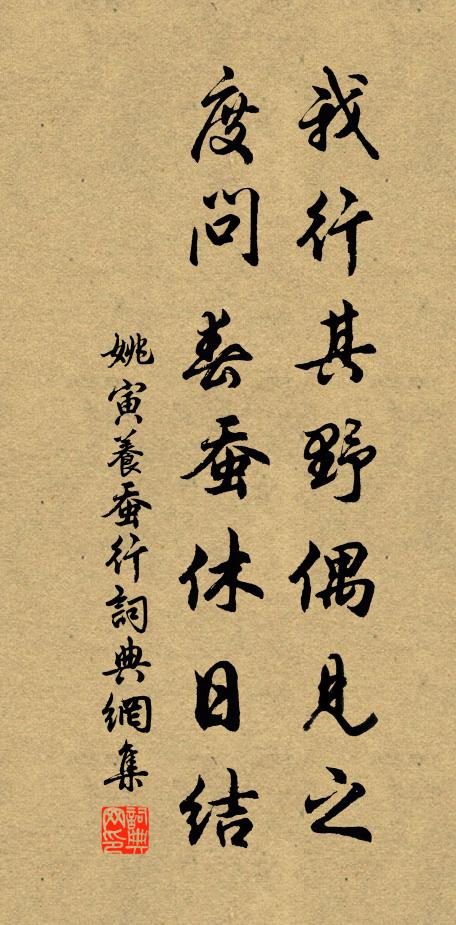 我行其野偶見之
度問春蚕休日結
姚寅養蚕行詞典網集
詞典
网印